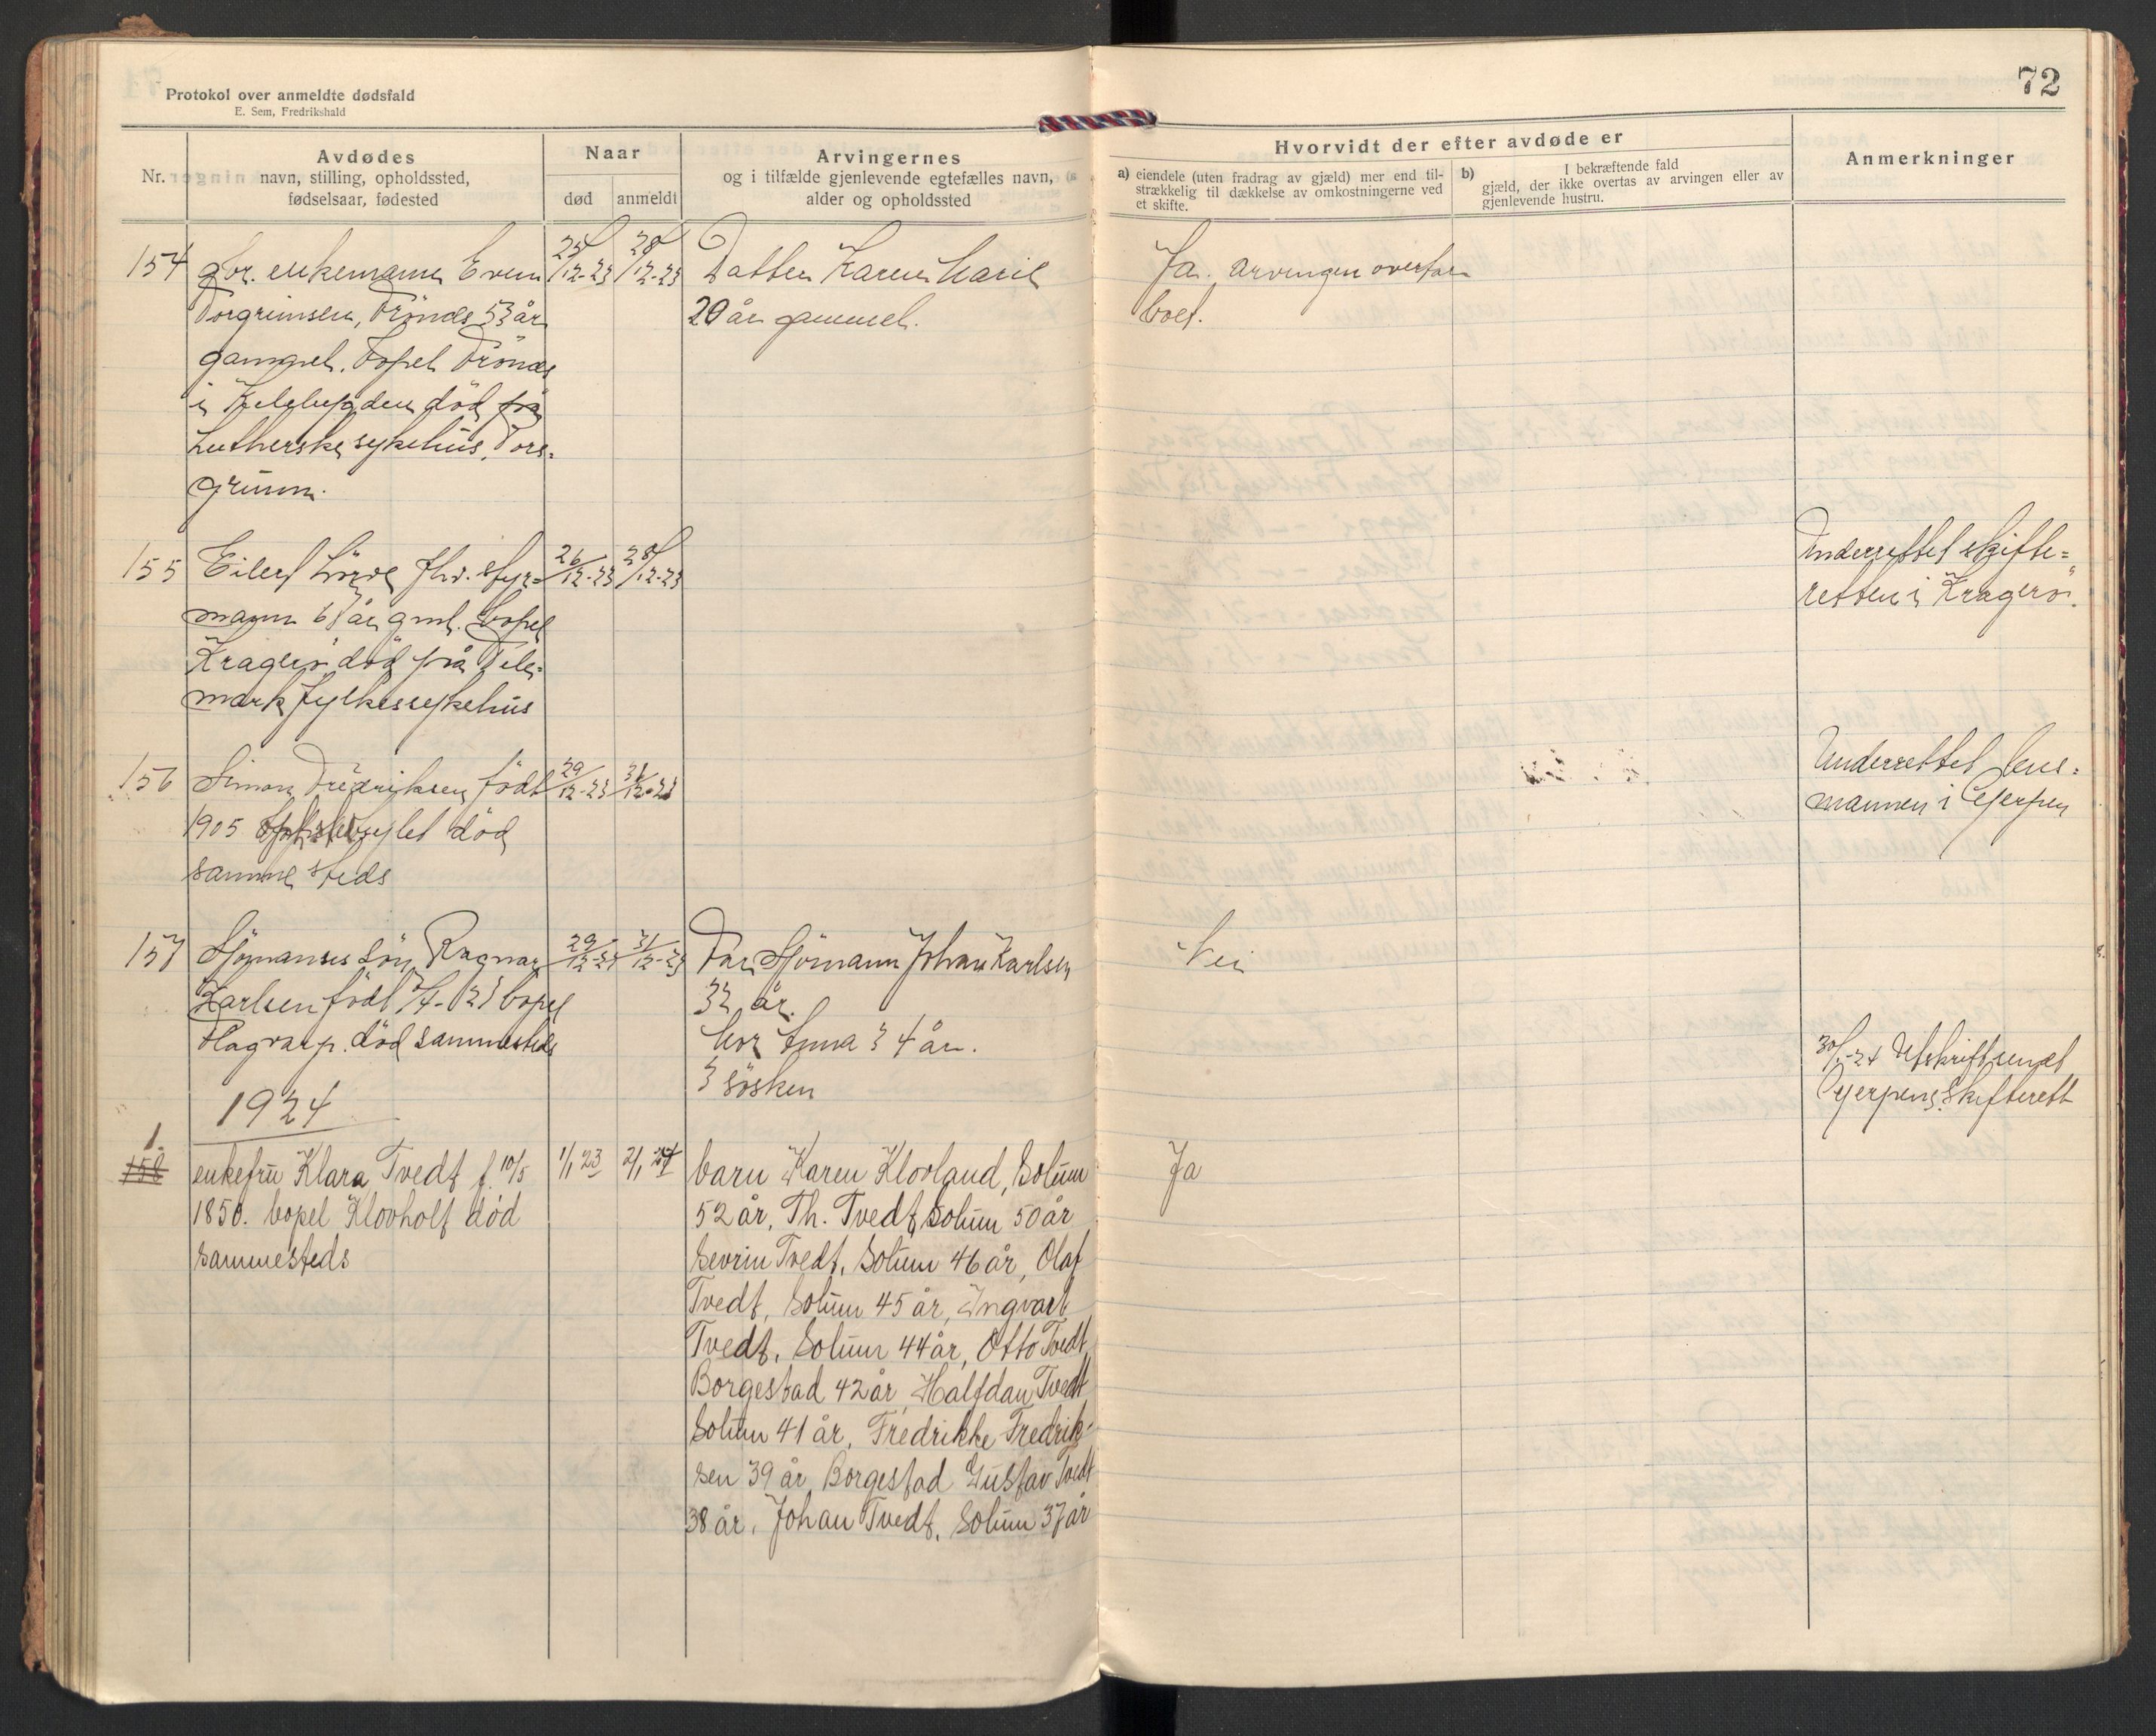 72
Protokol over anmeldte dødsfald
E. Sem, Fredrikshald
Nr.
Avdødes
navn, stilling, opholdssted,
fødselsaar, fødested
Naar
død
anmeldt
Arvingernes
og i tilfælde gjenlevende egtefælles navn,
alder og opholdssted
Hvorvidt der efter avdøde er
a) eiendele (uten fradrag av gjæld) mer end til-
strækkelig til dækkelse av omkostningerne ved
et skifte.
b) I bekræftende fald
gjæld, der ikke overtas av arvingen eller av
gjenlevende hustru.
Anmerkninger
154 gbr. enkemann Even
Torgrimsen, Trönes 53 år
gammel. bopel Trönes
i død på
Lutherske sykehus, Pors-
grunn.
25/12-23 28/12-23
Datter Karen Marie
20 år gammel.
Ja. arvingen overtar
boet.
155 Eilert fhv. styr-
mann 68 år gml. bopel
Kragerö död på Tele-
mark fylkessykehus
26/12-23 28/12-23
Underrettet skifte-
retten i Kragerö.
156 Simon Fredriksen født
1905 död
samme steds
29/12-23 31/12-23
Underrettet lens-
mannen i Gjerpen
157 Sjömannss sön Ragnar
Karlsen födt 7/4-123 bopel
död sammesteds
29/12-23 31/12-23
Far, Sjömann Johan Karlsen
32 år.
Mor Anna 34 år.
3 sösken
Nei
1924
1.
158 enkefru Klara Tvedt f. 10/5
1850. bopel Klovholt død
sammesteds
1/1 23 2/1 24
barn Karen Klovland, Solum
52 år, Th. Tvedt, Solum 50 år
Sevrin Tvedt, Solum 46 år, Olaf
Tvedt, Solum 45 år, Ingvart
Tvedt, Solum 44 år, Otto Tvedt,
Borgestad 42 år, Halfdan Tvedt
Solum 41 år, Fredrikke Fredrik-
sen 39 år, Borgestad Gustav Tvedt
38 år, Johan Tvedt, Solum 37 år
Ja
30/1-24 Utskrift sendt
Gjerpens skifterett